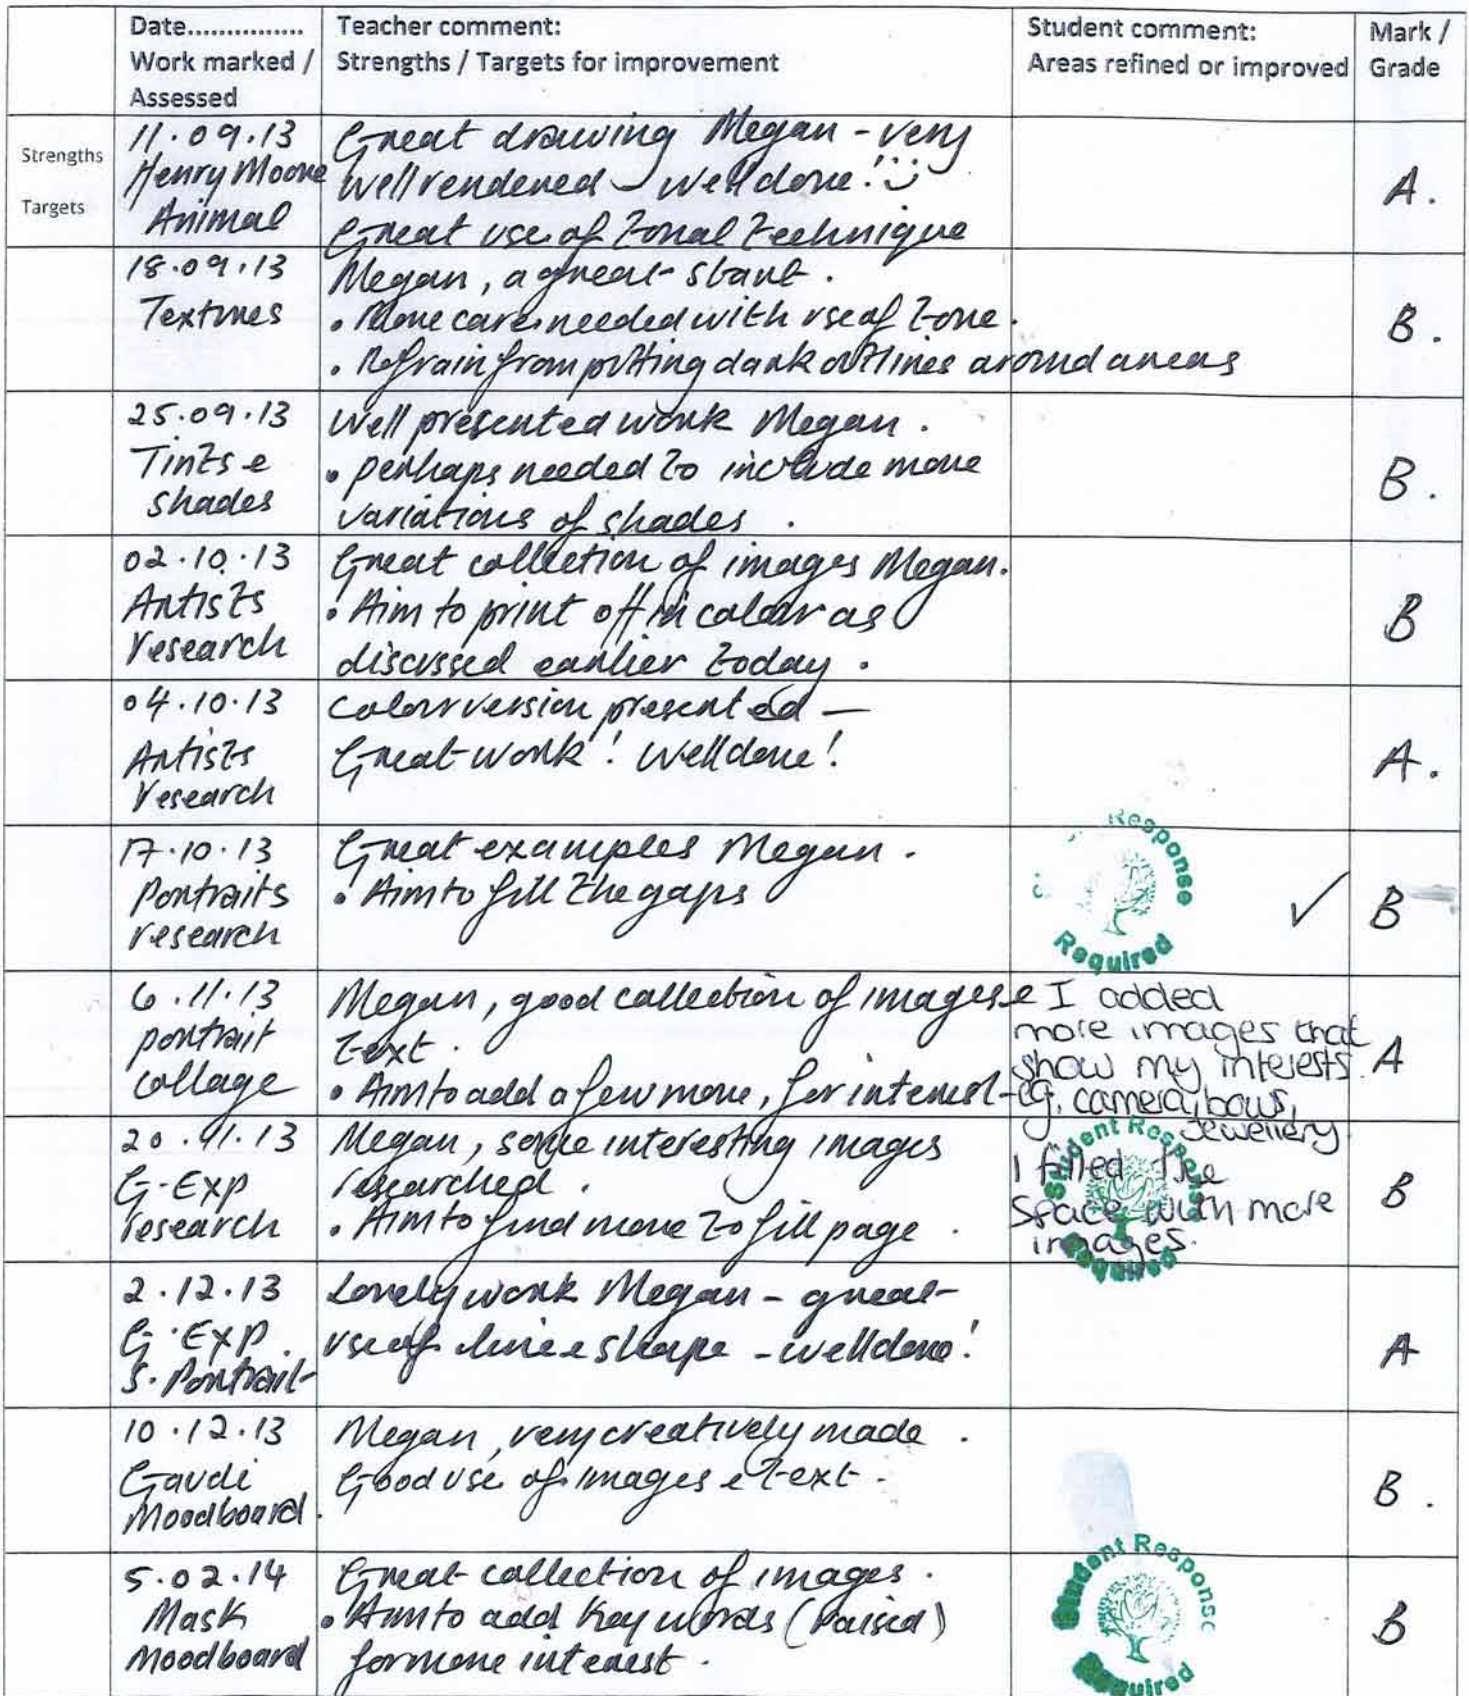 Date...............
Work marked /
Assessed
Teacher comment:
Strengths / Targets for improvement
Student comment:
Areas refined or improved
Mark /
Grade
Strengths
Targets
11.09.13
Henry Moore
Animal
Great drawing Megan - very
well rendered - well done!
Great use of tonal technique
A.
18.09.13
Textures
Megan, a great start.
• More care needed with use of tone.
• Refrain from putting dark outlines around areas
B.
25.09.13
Tints &
shades
Well presented work Megan.
• perhaps needed to include more
variations of shades.
B.
02.10.13
Artists
research
Great collection of images Megan.
• Aim to print off in colour as
discussed earlier today.
B
04.10.13
Artists
research
Colour version presented -
Great work! Well done!
A.
17.10.13
Portraits
research
Great examples Megan.
• Aim to fill the gaps
Response
Required
✓
B
6.11.13
portrait
collage
Megan, good collection of images &
text.
• Aim to add a few more, for interest
I added
more images that
show my interests.
eg. camera, bows,
Jewellery
A
20.11.13
G-Exp
research
Megan, some interesting images
researched.
• Aim to find more to fill page.
Student Response
Required
I filled the
space with more
images.
B
2.12.13
G.Exp.
S. Portrait
Lovely work Megan - great
use of line & shape - well done!
A
10.12.13
Gaudi
Moodboard.
Megan, very creatively made.
Good use of images & text.
B.
5.02.14
Mask
Moodboard
Great collection of images.
• Aim to add key words (raised)
for more interest.
Student Response
Required
B